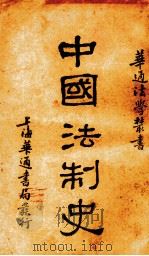 華通法學叢書
中國法制史
上海華通書局發行
www.toopoo.com